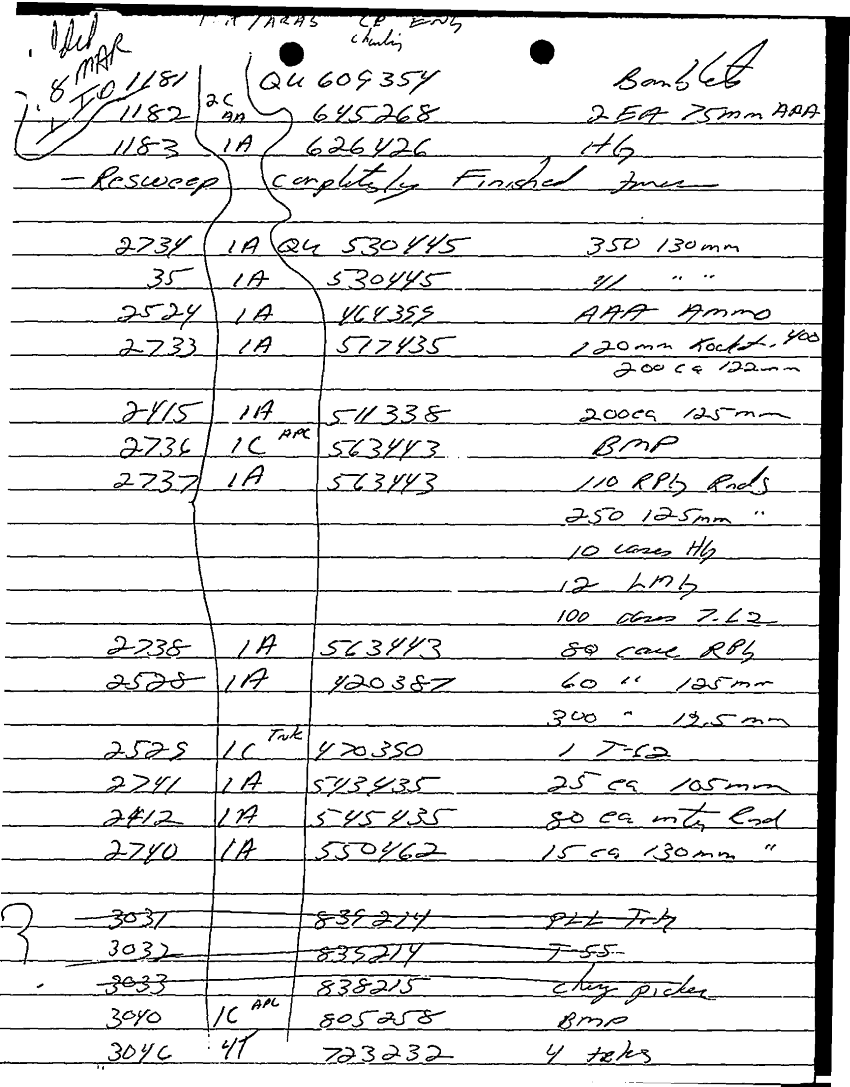 8 MAR
1181 QU 609354 Bomblets
1182 2C AA 645268 2 EA 75mm AAA
1183 1A 626426 HG
- Resweep Completely Finished
2734 1A QU 530445 350 130mm
35 1A 530445 41 " "
2524 1A 464399 AAA Ammo
2733 1A 517435 120mm 400
200 ea 122mm
2415 1A 511338 200ea 125mm
2736 1C APC 563443 BMP
2737 1A 563443 110 RPG Rnds
250 125mm "
10 cases HG
12 LMG
100 cases 7.62
2738 1A 563443 80 case RPG
2528 1A 420387 60 " 125mm
300 " 19.5mm
2529 1C Tnk 470390 1 T-62
2741 1A 543435 25 ea 105mm
2412 1A 545435 80 ea mtr Rnd
2740 1A 550462 15 ea 130mm "
3031 839214
3032 835214 T-55
3033 838215 chry picker
3040 1C APC 805258 BMP
3046 4T 723232 4 trks